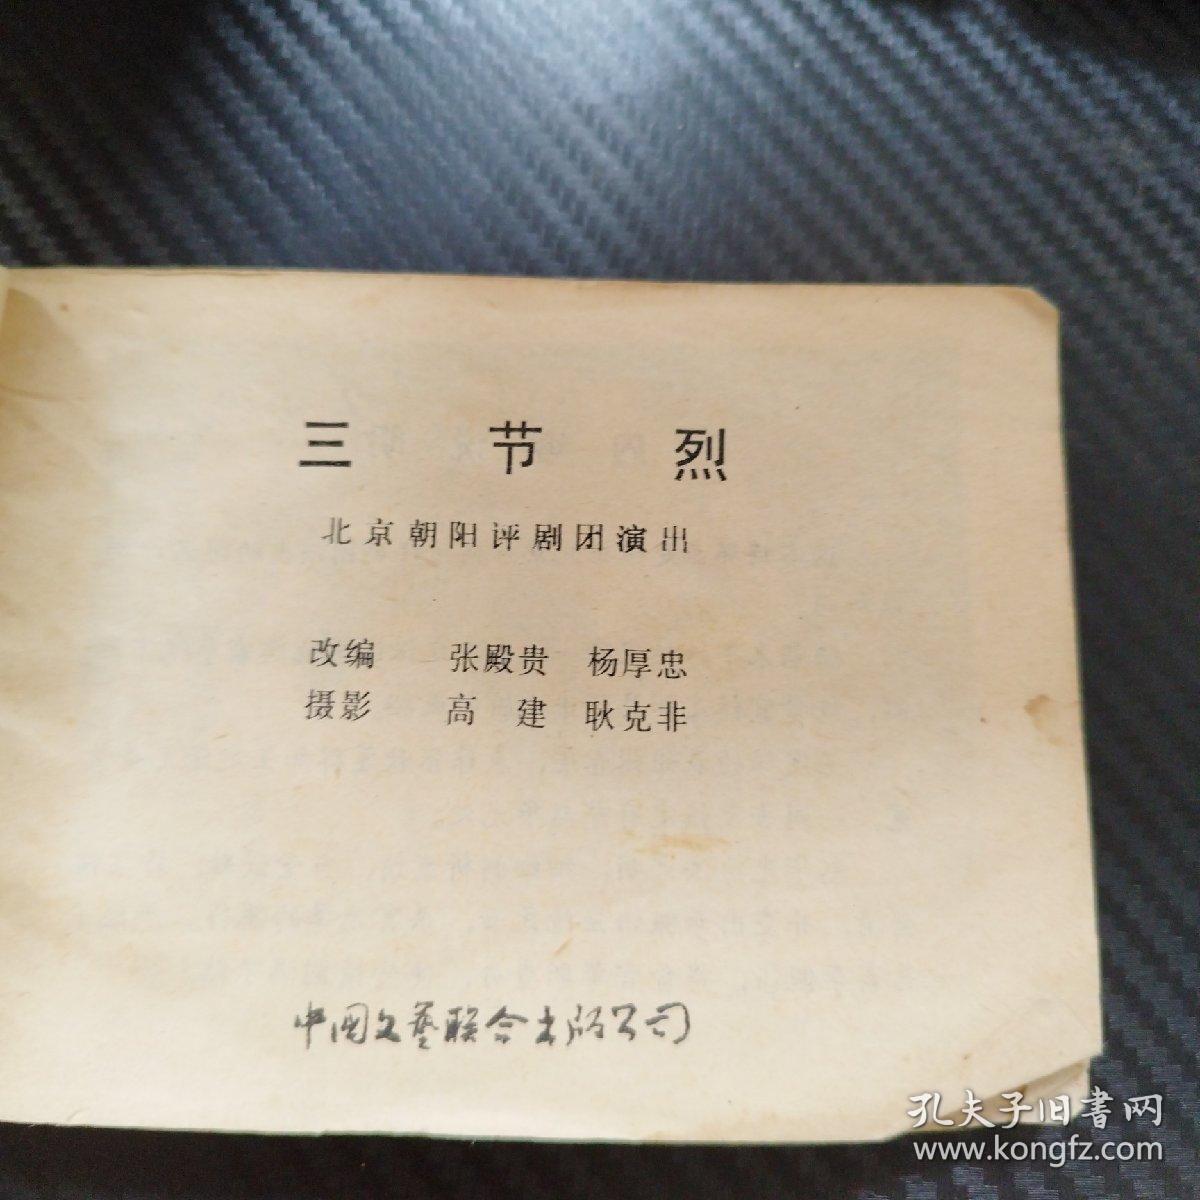 三节烈
北京朝阳评剧团演出
改编 张殿贵 杨厚忠
摄影 高建 耿克非
中国文艺联合出版公司
孔夫子旧书网
www.kongfz.com